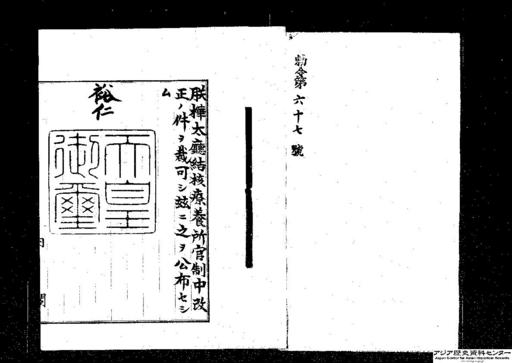 勅令第六十七號
朕樺太廳結核療養所官制中改
正ノ件ヲ裁可シ玆ニ之ヲ公布セシ
ム
裕仁
天皇
御璽
内閣
アジア歴史資料センター
Japan Center for Asian Historical Records